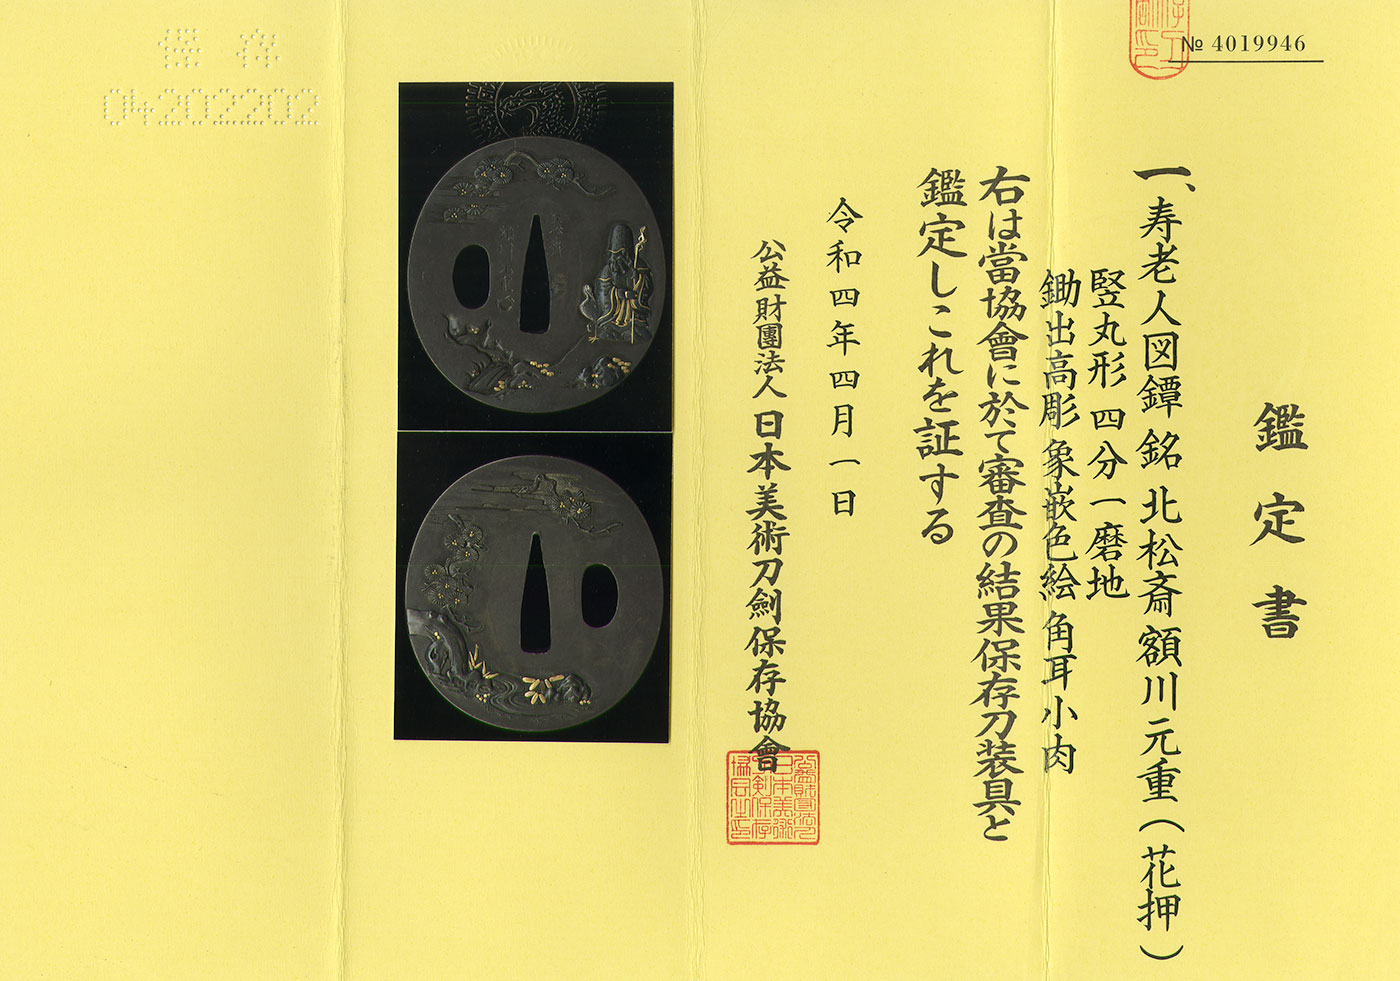 № 4019946
鑑定書
一、寿老人図鐔 銘 北松斎額川元重(花押)
竪丸形 四分一磨地
鋤出高彫 象嵌色絵 角耳小肉
右は當協會に於て審査の結果保存刀装具と
鑑定しこれを証する
令和四年四月一日
公益財團法人 日本美術刀劍保存協會
保存
04202202